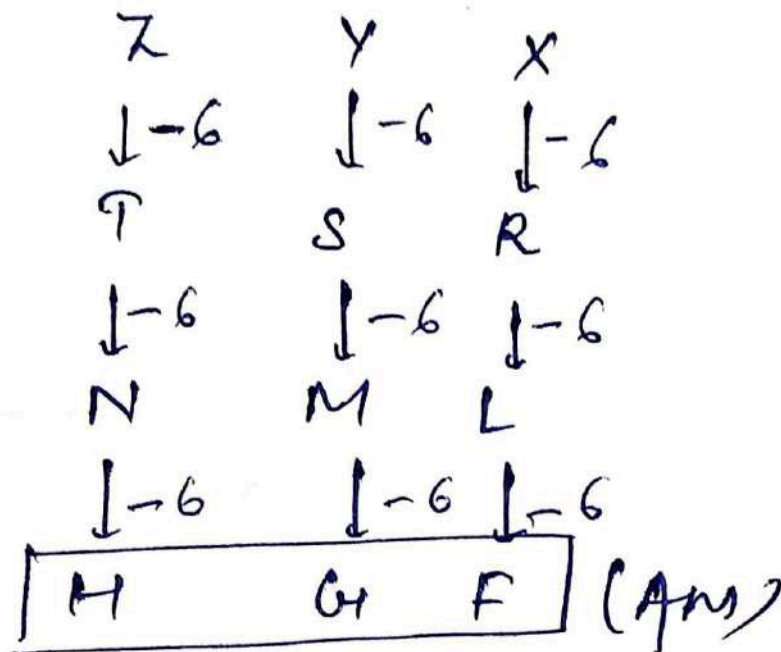 Z Y X
↓-6 ↓-6 ↓-6
T S R
↓-6 ↓-6 ↓-6
N M L
↓-6 ↓-6 ↓-6
H G F (Ans)